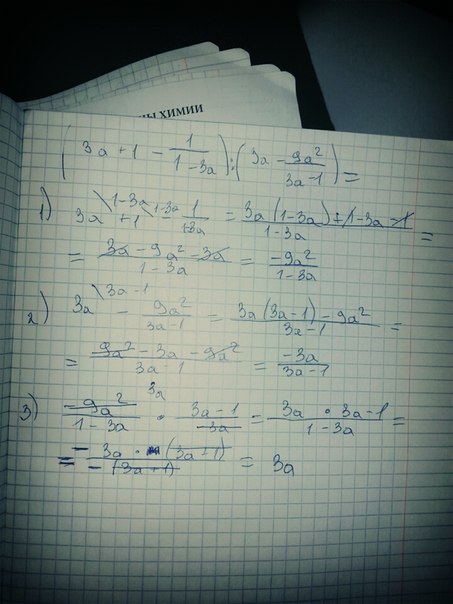 НЫ ХИМИИ
(3a + 1 - 1/(1-3a)) : (3a - 9a²/(3a-1)) =
1) 3a \1-3a + 1 \1-3a - 1/(1-3a) = (3a(1-3a)+1-3a-1)/(1-3a) =
= (3a - 9a² - 3a)/(1-3a) = -9a²/(1-3a)
2) 3a \3a-1 - 9a²/(3a-1) = (3a(3a-1) - 9a²)/(3a-1) =
= (9a² - 3a - 9a²)/(3a-1) = -3a/(3a-1)
3a
3) -9a²/(1-3a) · (3a-1)/3a = (3a · 3a-1)/(1-3a) =
= - 3a · (3a+1)/-(3a+1) = 3a